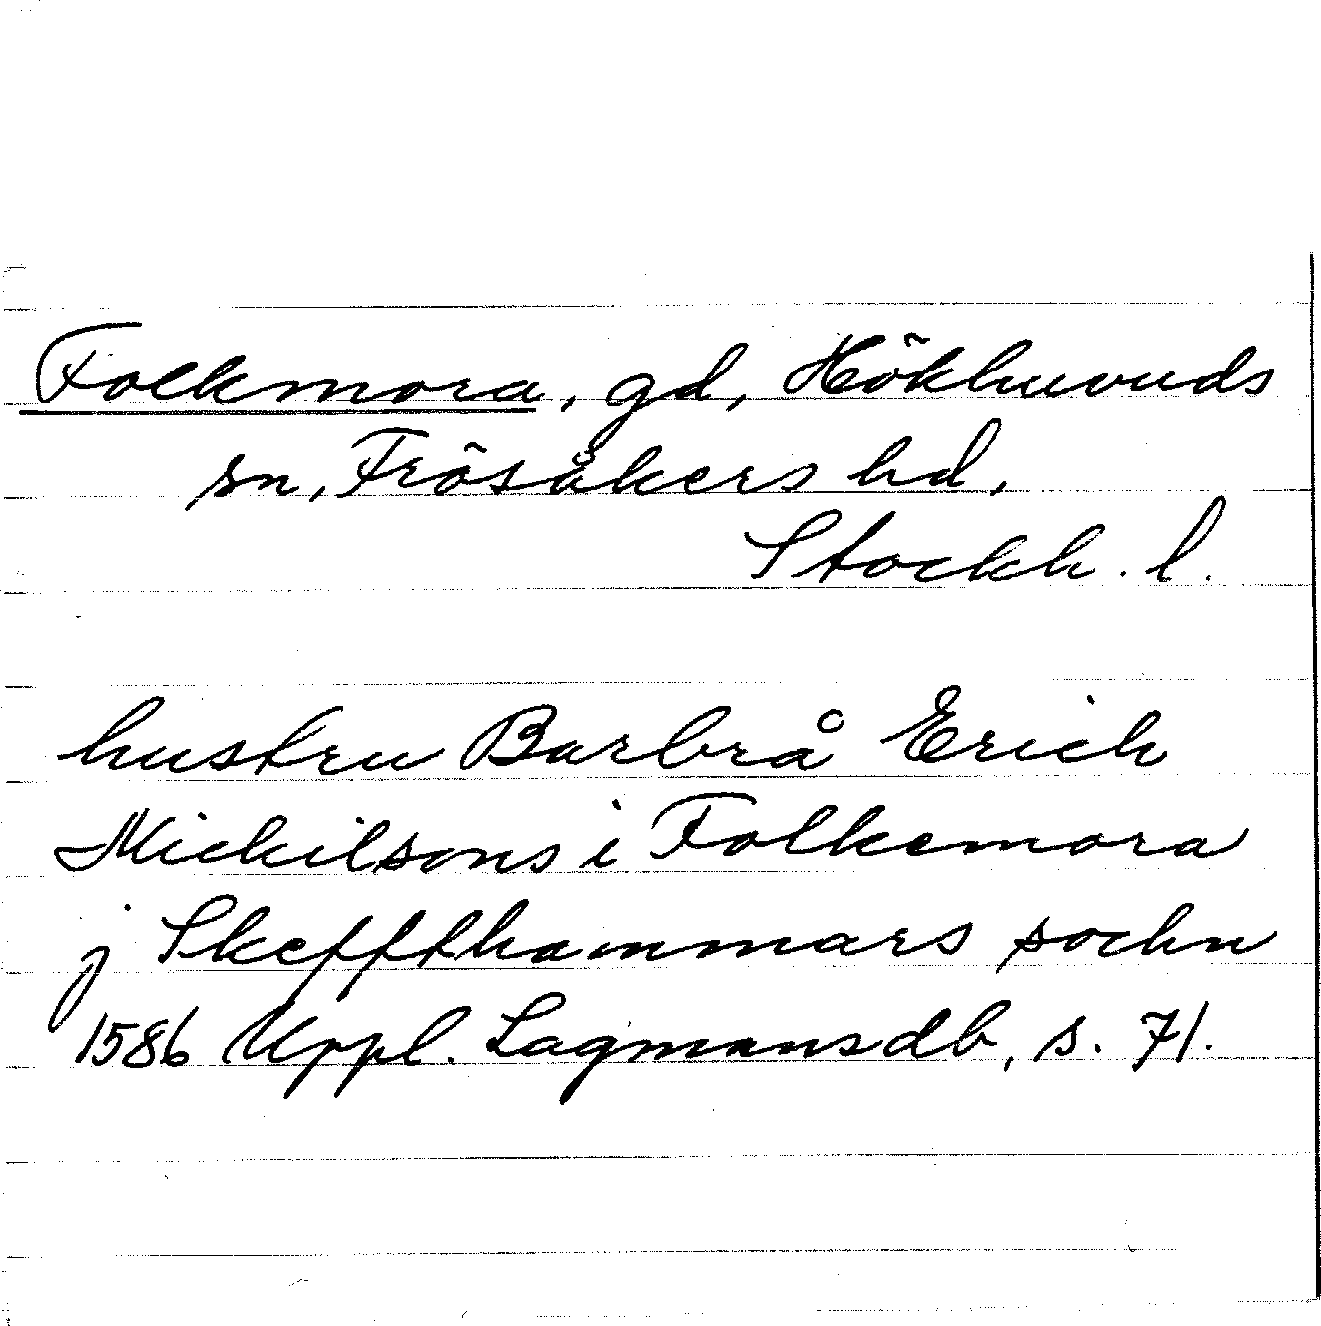 Folkmora, gd, Hökhuvuds
sn, Frösåkers hd,
Stockh. l.
hustru Barbrå Erich
Mickilsons i Folkemora
j Skeffthammars sochn
1586 Uppl. Lagmansdb, s. 71.